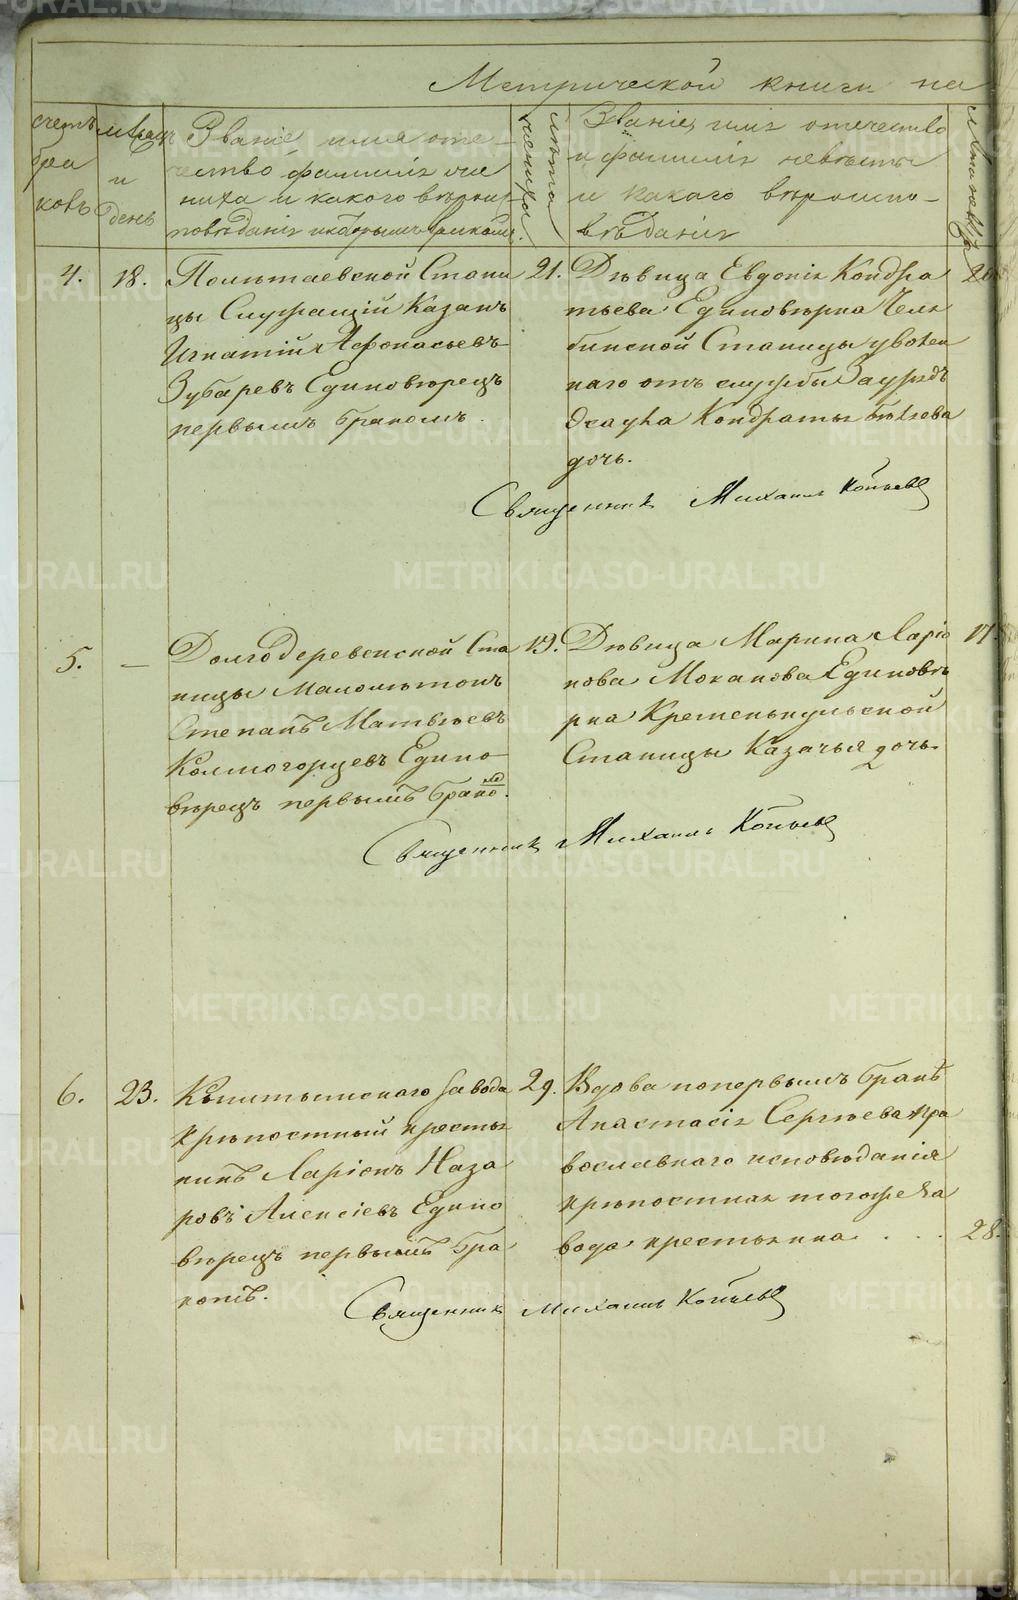 Метрической книги на
счетъ браковъ
мѣсяцъ и день
Званіе, имя оте-
чество, фамилія же-
ниха и какого вѣроис-
повѣданія и которымъ бракомъ.
лѣта жениха
Званіе, имя отечество
и фамилія невѣсты
и какаго вѣроиспо-
вѣданія
лѣта невѣсты
4. 18.
Полѣтаевской Стани
цы Служащій Казакъ
Игнатій Афонасьевъ
Зубаревъ Единовѣрецъ
первымъ бракомъ.
21.
Дѣвица Евдокія Кондра
тьева Единовѣрка Челя
бинской Станицы уволен
наго отъ службы Заурядъ
Эсаула Кондратья
дочь.
20.
Священник Михаилъ Копьевъ
5. —
Долгодеревенской Ста
ницы Малолѣтокъ
Степанъ Матвѣевъ
Колмогорцевъ Едино
вѣрецъ первымъ брако
мъ.
19.
Дѣвица Марина Ларіо
нова Моканова Единовѣ
рка Кременькульской
Станицы Казачья дочь.
17.
Священник Михаилъ Копьевъ
6. 23.
Кыштымскаго завода
крѣпостный кресть
нинъ Ларіонъ Наза
ровъ Алексіевъ Едино
вѣрецъ первымъ бра
комъ.
29.
Вдова по первымъ бракѣ
Анастасія Сергѣева пра
вославнаго исповѣданія
крѣпостная тогоже за
вода крестьянка . . .
28.
Священник Михаилъ Копьевъ
METRIKI.GASO-URAL.RU